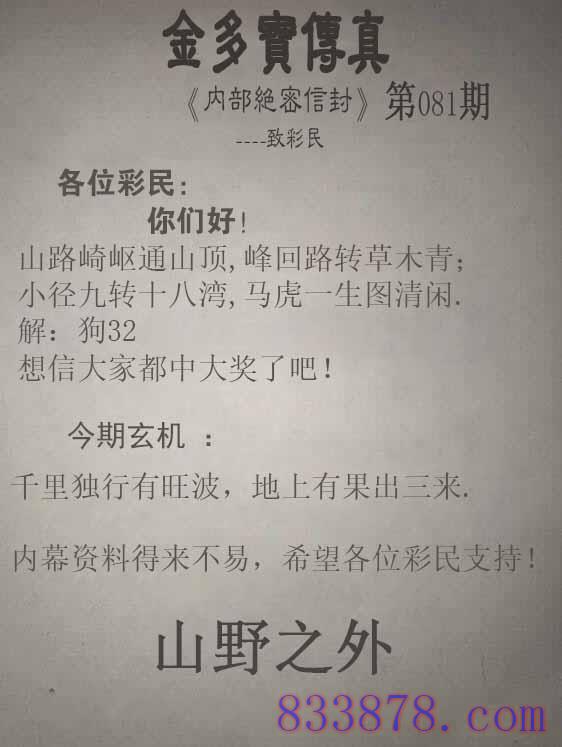 金多寶傳真
《内部絶密信封》第081期
----致彩民
各位彩民:
你们好!
山路崎岖通山顶,峰回路转草木青;
小径九转十八湾,马虎一生图清闲.
解：狗32
想信大家都中大奖了吧!
今期玄机 ：
千里独行有旺波，地上有果出三来.
内幕资料得来不易，希望各位彩民支持!
山野之外
833878.com